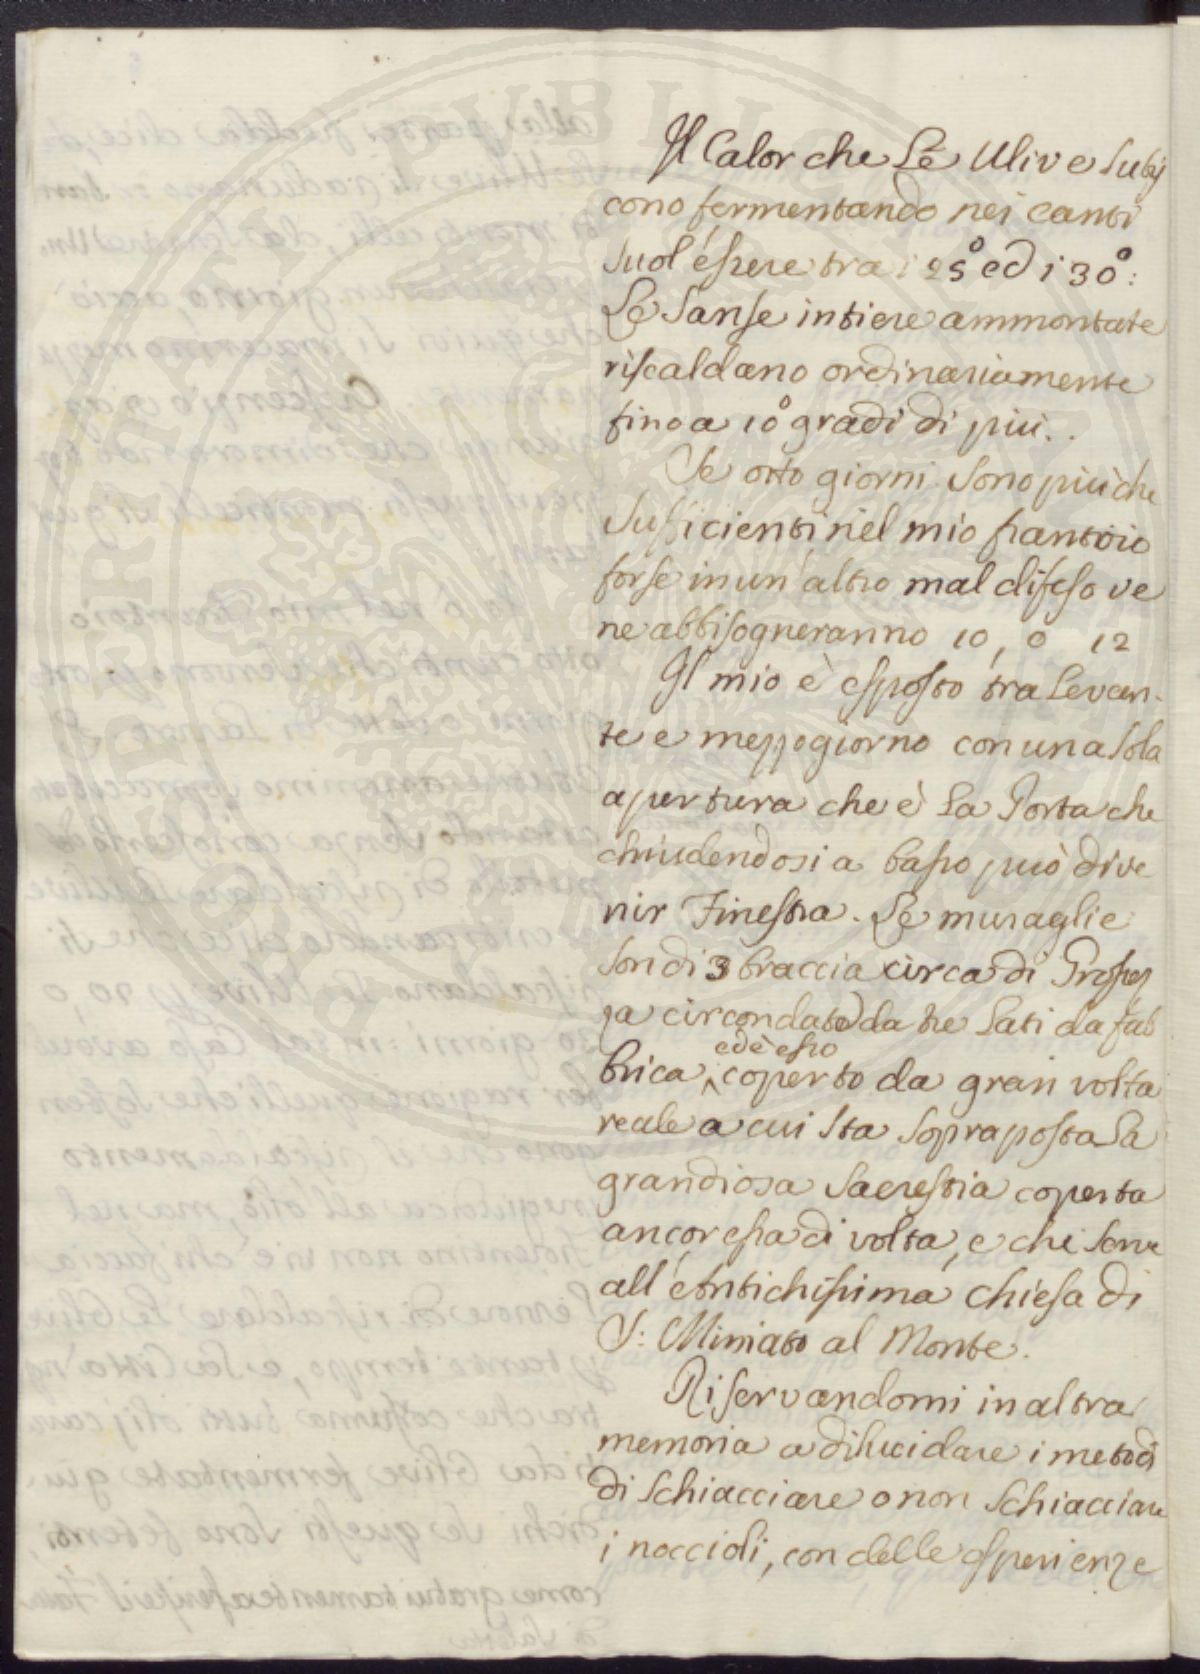 Il Calor che Le Ulive subis
cono fermentando nei canti
suol essere tra i 25° ed i 30°:
Le Sanse intiere ammontate
riscaldano ordinariamente
fino a 10° gradi di più..
Se otto giorni sono più che
sufficienti nel mio frantoio
forse in un' altro mal difeso ve
ne abbisogneranno 10, o 12
Il mio è esposto tra Levan-
te e mezzogiorno con una sola
apertura che è La Porta che
chiudendosi a basso può dive
nir Finestra. Le muraglie
son di 3 braccia circa di Grossez
za circondate da tre Lati da fab
ed è esso
brica ^ coperto da gran volta
reale a cui sta soprapposta La
grandiosa Sacrestia coperta
ancor essa di volta, e che serve
all' Antichissima Chiesa di
S: Miniato al Monte.
Riservandomi in altra
memoria a dilucidare i metodi
di schiacciare o non schiacciare
i noccioli, con delle esperienze